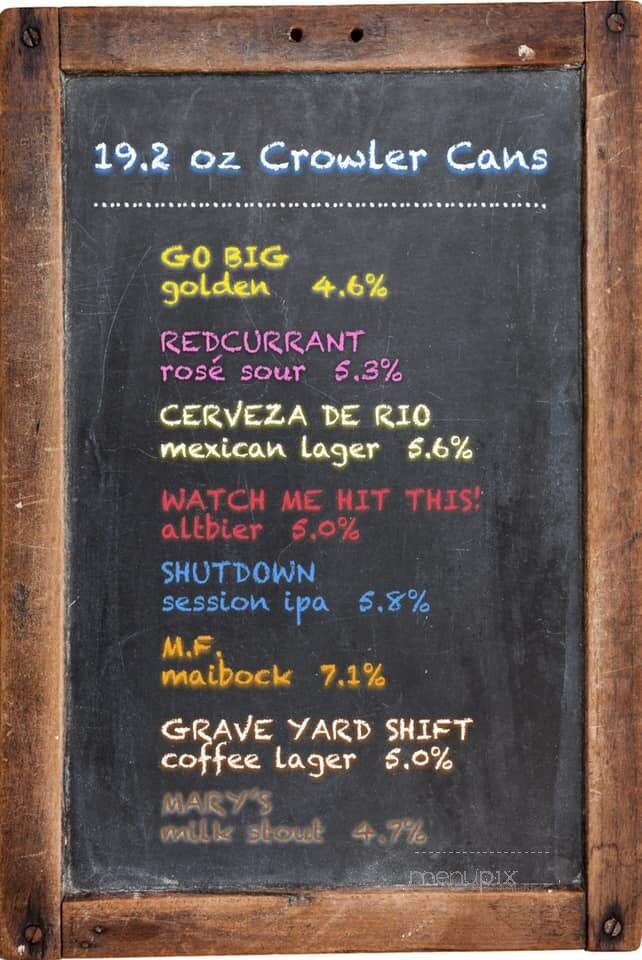 19.2 oz Crowler Cans
GO BIG
golden 4.6%
REDCURRANT
rosé sour 5.3%
CERVEZA DE RIO
mexican lager 5.6%
WATCH ME HIT THIS!
altbier 5.0%
SHUTDOWN
session ipa 5.8%
M.F.
maibock 7.1%
GRAVE YARD SHIFT
coffee lager 5.0%
MARY'S
milk stout 4.7%
menupix